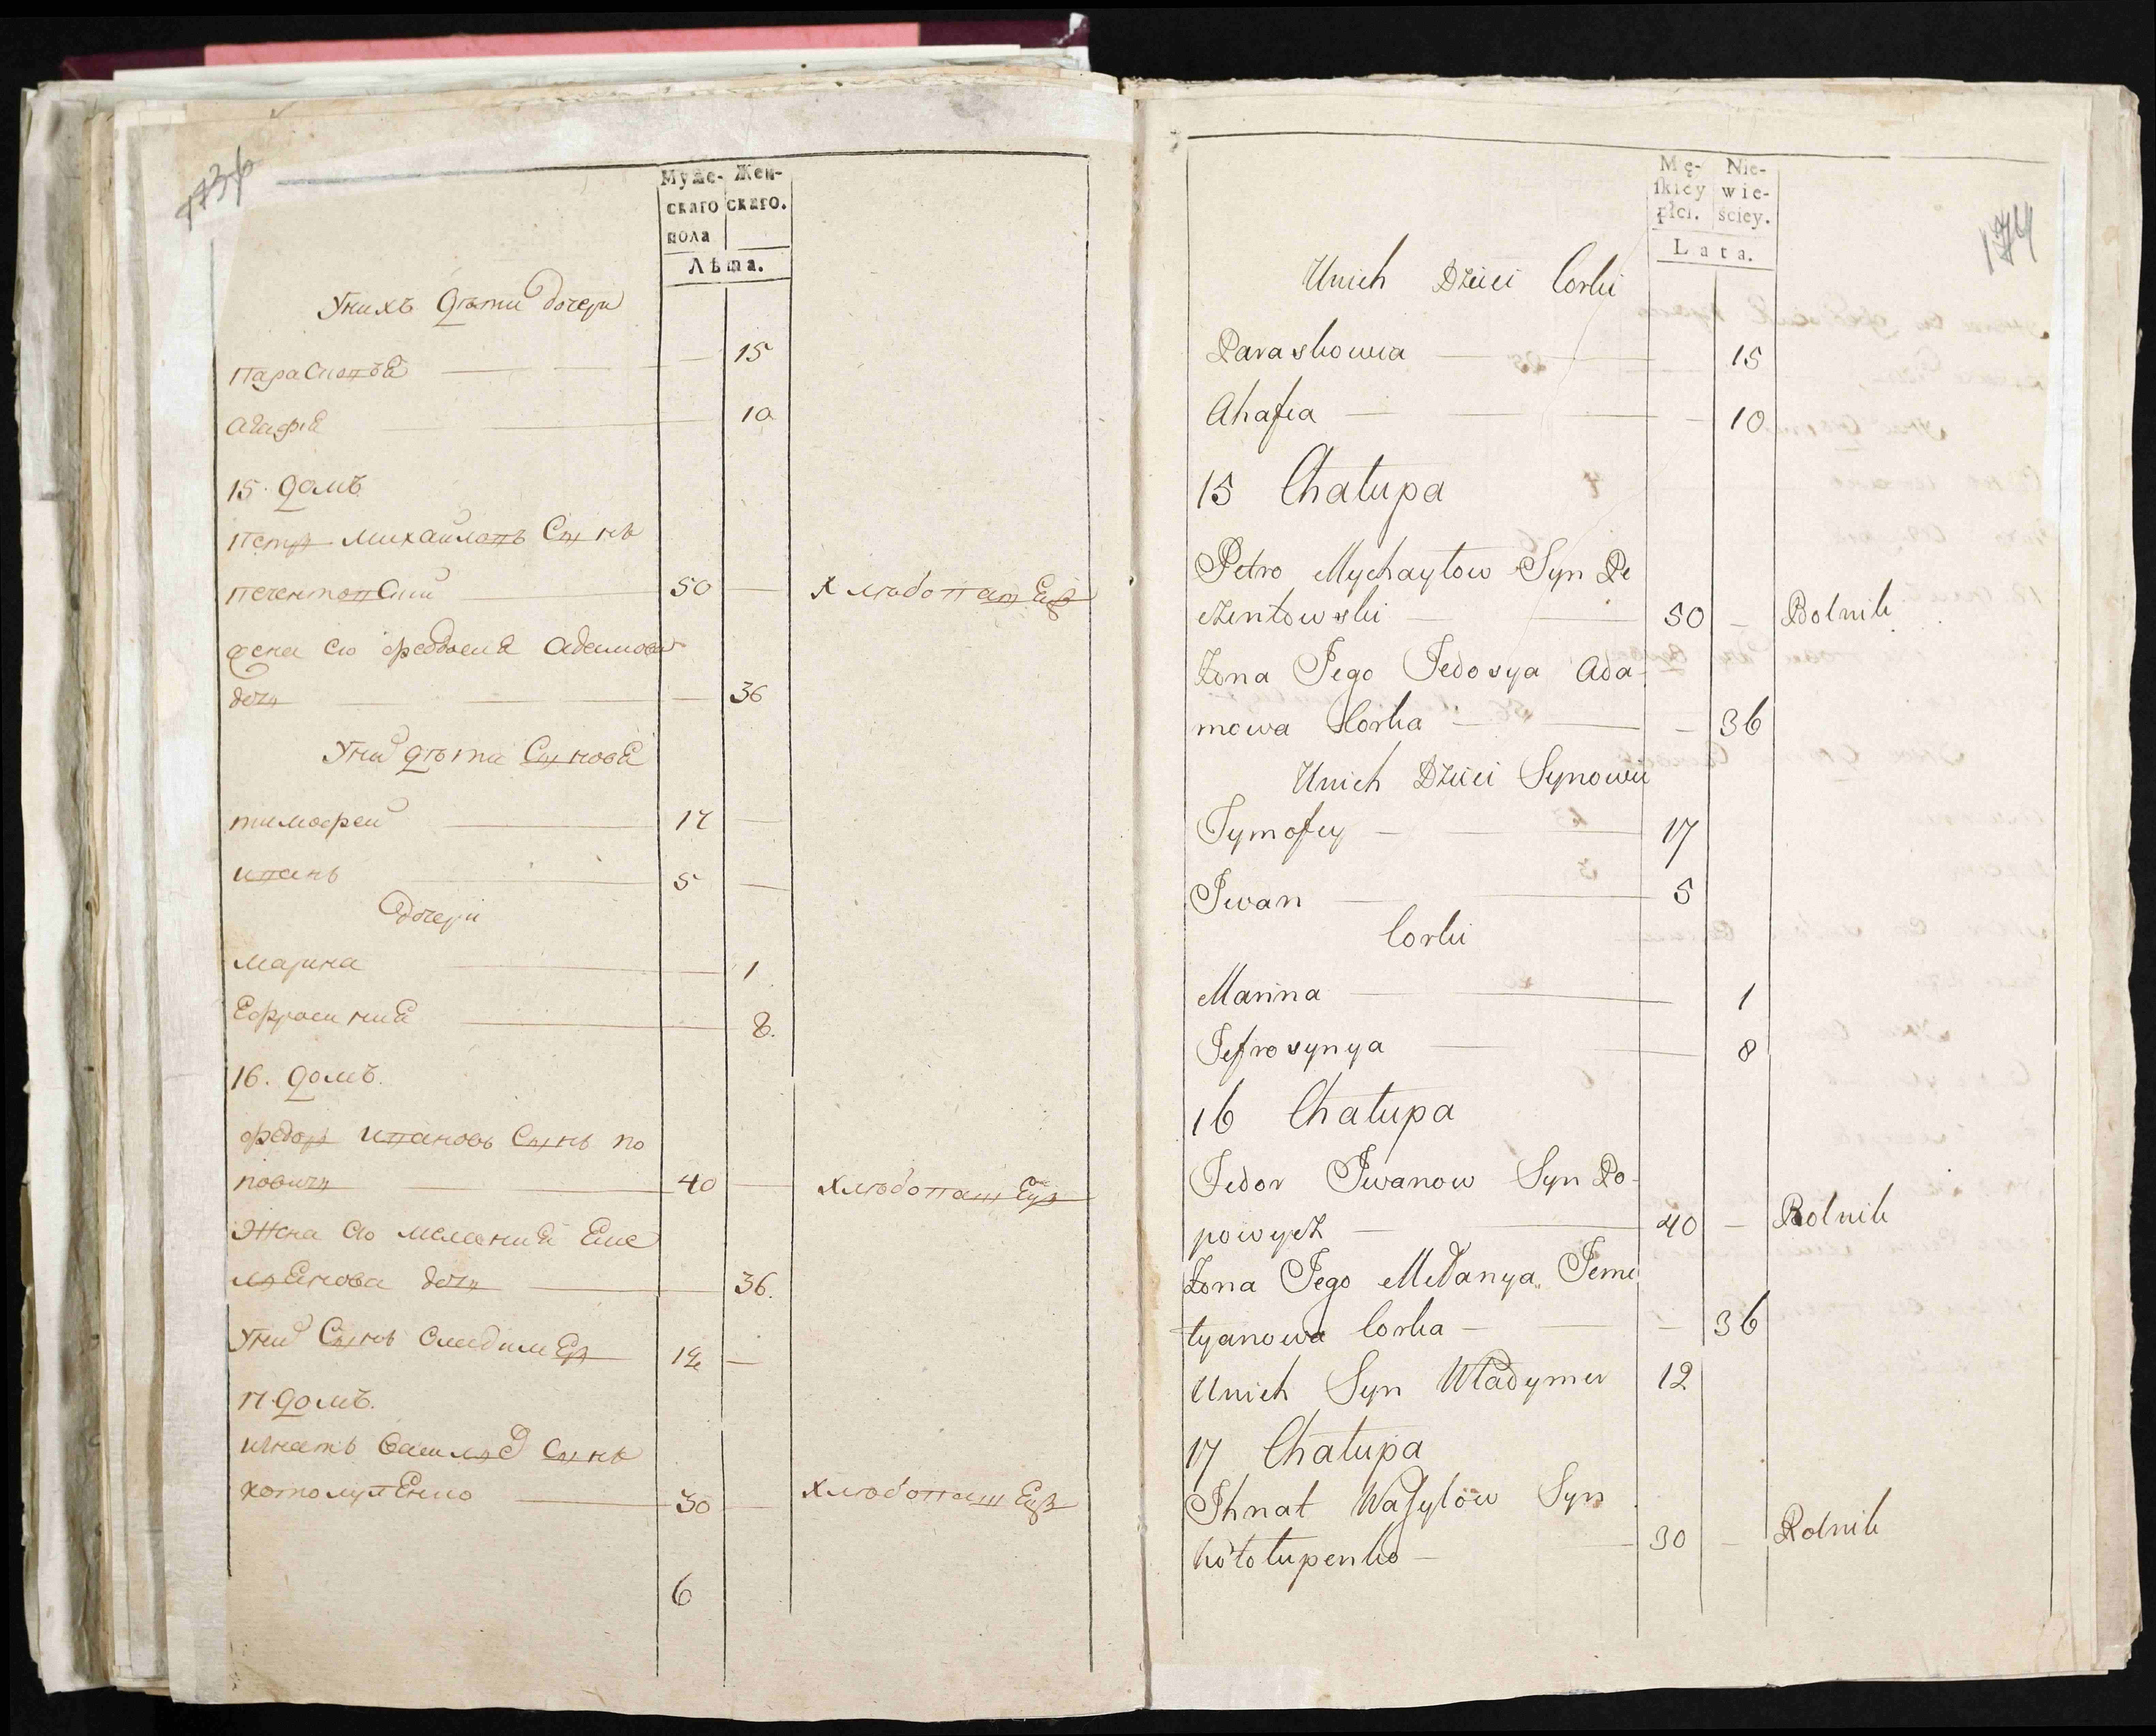 173 б
Муже- Жен-
скаго скаго.
пола
Лѣта.
Унихъ дѣти дочери
парасковѣя 15
агафія 10
15. домъ.
петръ михайловъ Сынъ
печентовскій 50 хлѣбопашецъ
жена его федосия адамова
дочъ 36
Унихъ дѣти Сыновя
тимофей 17
иванъ 5
дочери
марина 1
Ефросиния 8.
16. домъ.
федоръ ивановъ Сынъ по
повичъ 40 хлѣбопашецъ
жена его мелания Еме
лянова дочъ 36.
Унихъ Сынъ 12
17. домъ.
игнатъ василевъ Сынъ
котолупенко 30 хлѣбопашецъ
6
174
Mę- Nie-
ſkiey wie-
płci. ściey.
Lata.
Unich Dzieci Corki
Paraskowia 15
Ahafia 10
15 Chałupa
Petro Mychayłow Syn Pe
czentowski 50 Rolnik
Żona Jego Fedosya Ada-
mowa Corka 36
Unich Dzieci Synowie
Tymofey 17
Iwan 5
Corki
Marina 1
Jefrosynya 8
16 Chałupa
Fedor Iwanow Syn Po-
powycz 40 Rolnik
Żona Jego Mełanya Jeme
lyanowa Corka 36
Unich Syn Władymer 12
17 Chałupa
Ihnat Waſylow Syn
kotołupenko 30 Rolnik